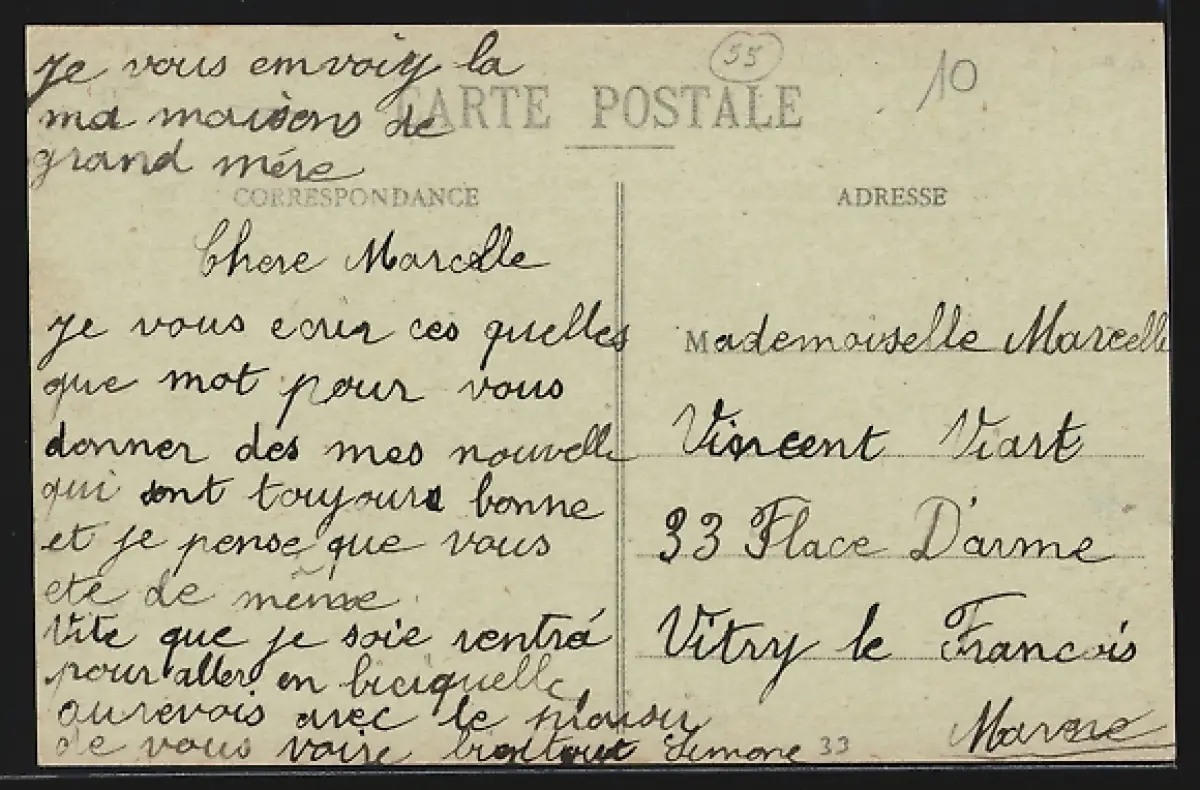 55
10
Je vous envoiy la
ma maisons de
grand mére
CARTE POSTALE
CORRESPONDANCE
Chere Marcelle
Je vous ecrir ces quelles
que mot pour vous
donner des mes nouvelle
qui sont toujours bonne
et je pense que vous
ete de même
Vite que je soie rentrá
pour aller en biciquelle
aurevois avec le plaisir
de vous voire bientout Simone 33
ADRESSE
Mademoiselle Marcelle
Vincent Viart
33 Place D'arme
Vitry le Francois
Marne